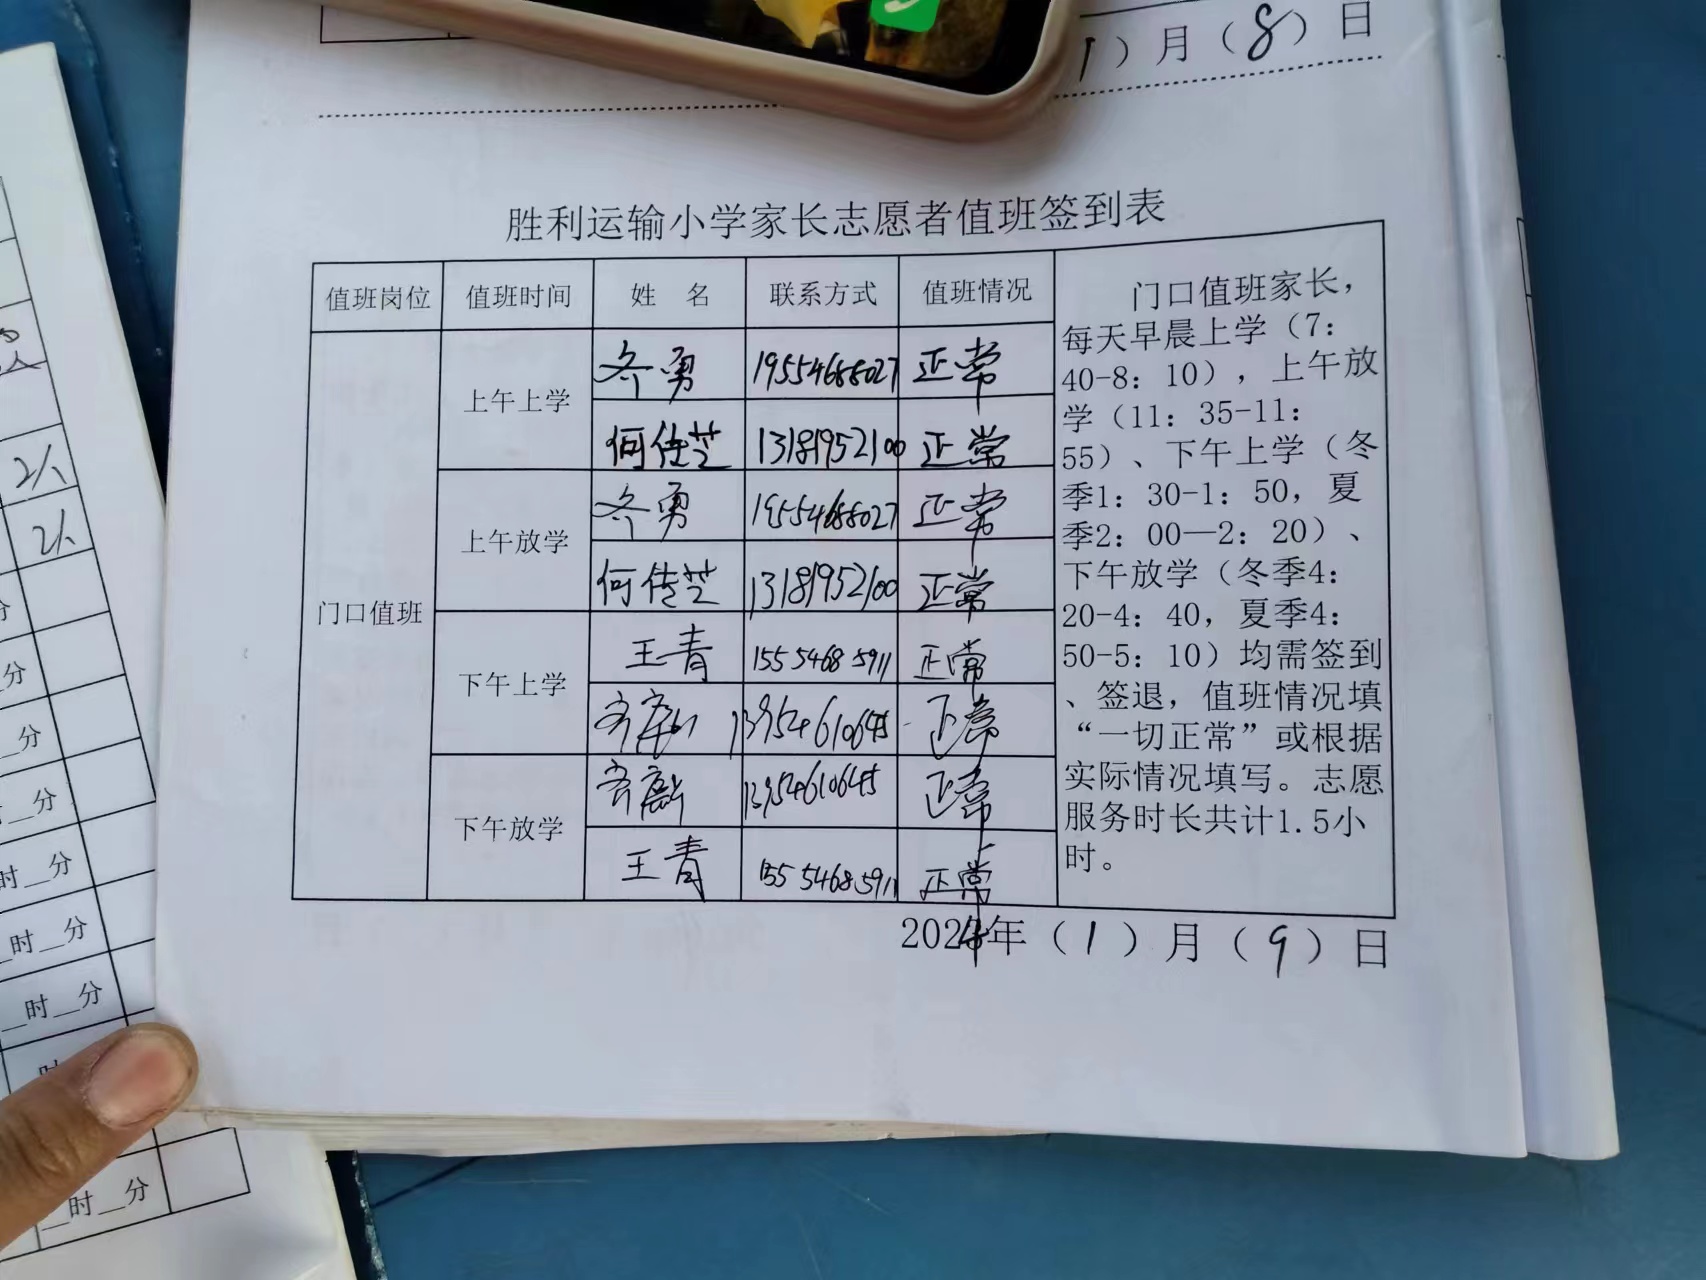 1）月（8）日
胜利运输小学家长志愿者值班签到表
值班岗位 值班时间 姓 名 联系方式 值班情况
门口值班
上午上学
冬勇 19554688027 正常
何传芝 13181952100 正常
上午放学
冬勇 19554688027 正常
何传芝 13181952100 正常
下午上学
王青 155 5468 5911 正常
13954610645 正常
下午放学
13954610645 正常
王青 155 5468 5911 正常
门口值班家长，
每天早晨上学（7：
40-8：10），上午放
学（11：35-11：
55）、下午上学（冬
季1：30-1：50，夏
季2：00—2：20）、
下午放学（冬季4：
20-4：40，夏季4：
50-5：10）均需签到
、签退，值班情况填
“一切正常”或根据
实际情况填写。志愿
服务时长共计1.5小
时。
2024年（1）月（9）日
分
_分
_分
分
时_分
时_分
_时_分
时
_时_分